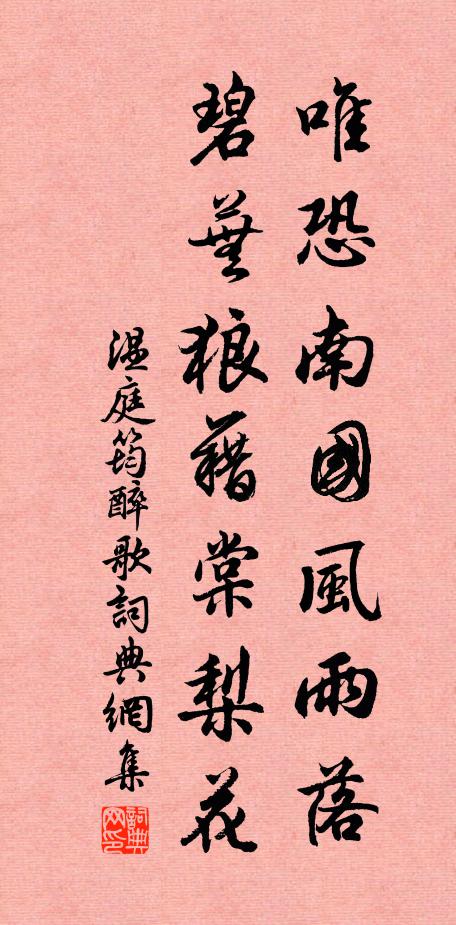 唯恐南國風雨落
碧蕪狼藉棠梨花
温庭筠醉歌詞典網集
詞典网印